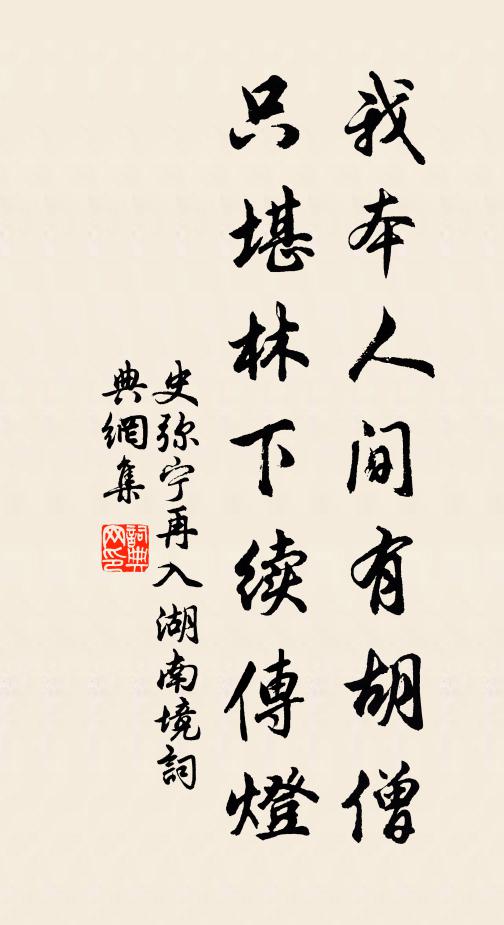 我本人间有胡僧
只堪林下续傳燈
史弥宁再入湖南境詞
典網集
詞典網印